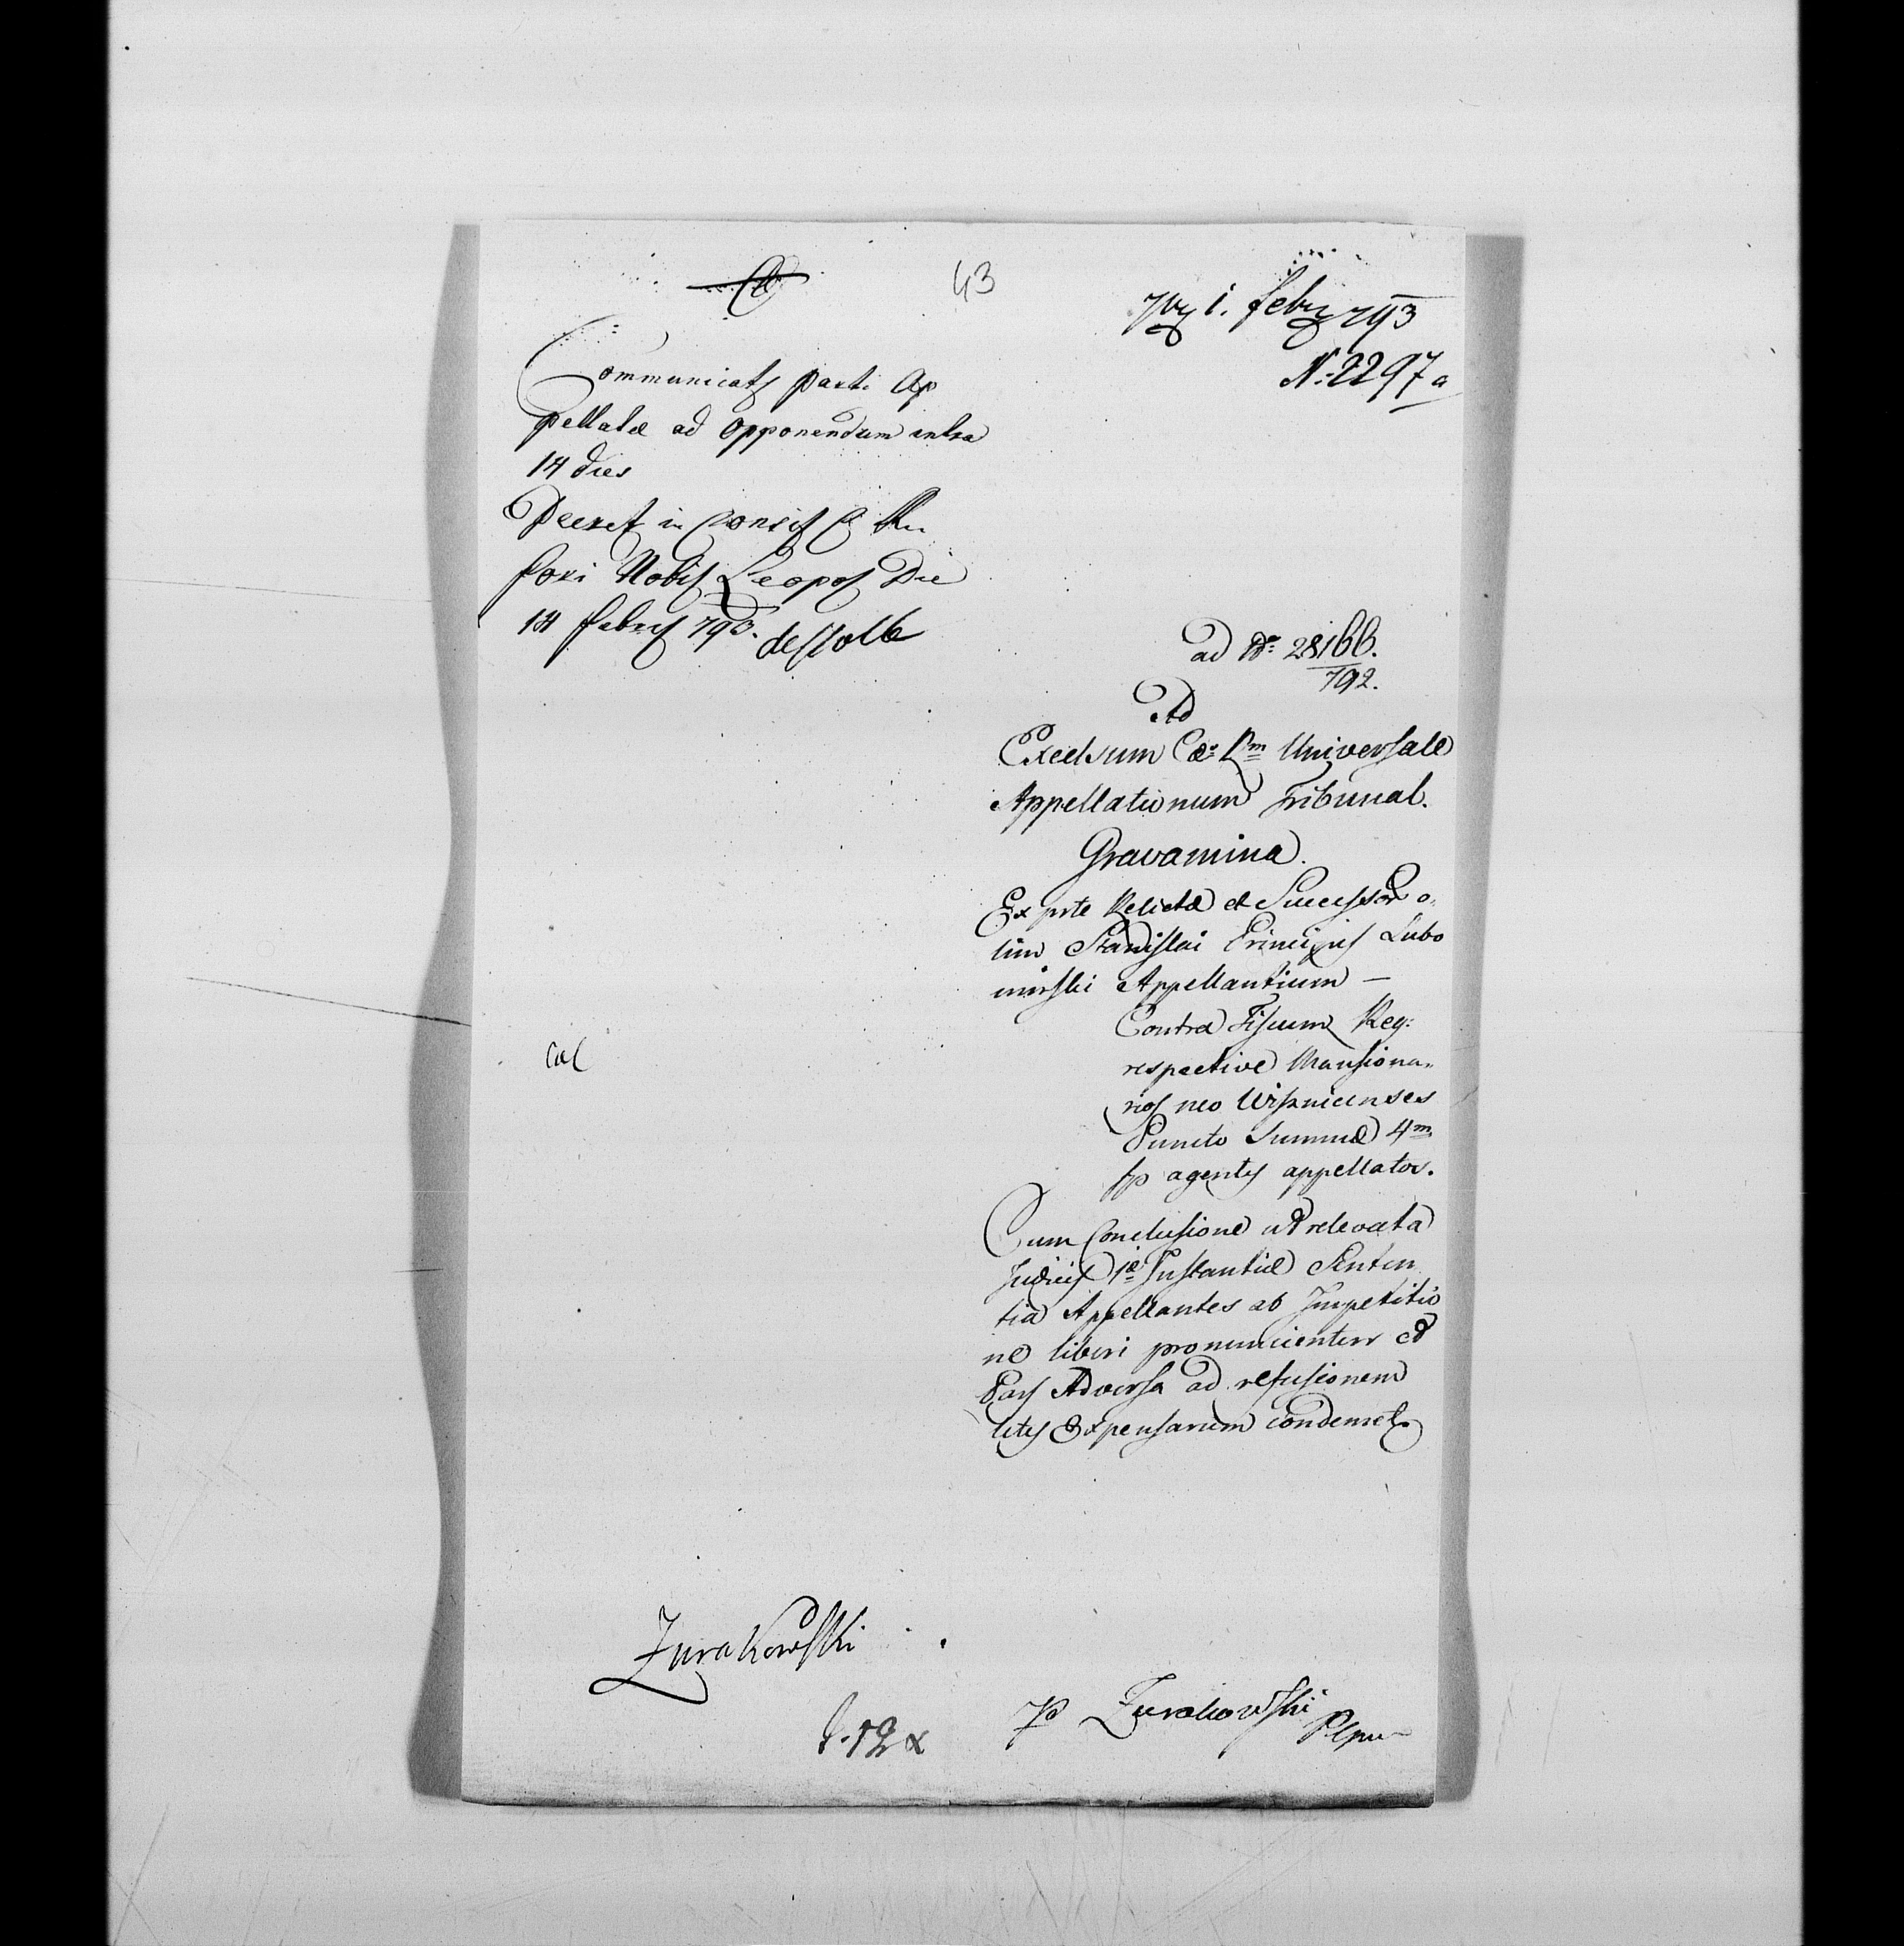 43
i. febr 793
N: 2297 a
Communicats parti Ap
pellatæ ad Opponendum intra
14 dies
Decret in Consis
fori Nobis Leopol Die
14 febry 793.
ad Nr: 28166.
792.
Ad
Excelsum Cæs: Rm Universale
Appellationum Tribunal.
Gravamina.
Ex prte Relictæ et Successor o-
lim Stanislai Principis Lubo
mirski Appellantium –
Contra Fiscum Reg:
respective Mansiona-
rios neo Wisznicenses
Puncto Summæ 4m
fp agentis appellator.
Cum Conclusione ut relevata
Judicis 1æ Instantiæ Senten
tia Appellantes ab Impetitio
ne liberi pronuncientur et
Pars Adversa ad refusionem
litis Expensarum condemnet
Cal
Zurakowski
Zurakowski